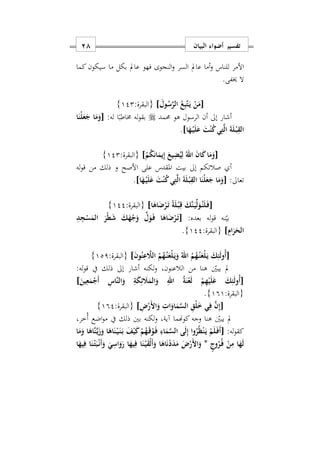 ٢٨ تفسير أضواء البيان
الأمر للناس وأما عالم السر والنجوى فهو عالم بكل ما سيكون كما
لا يخفى.
[مَنْ يَتَّبِعُ الرَّسُولَ] {البقرة:١٤٣}
أشار إلى أن الرسول هو محمد ﷺ بقوله مخاطبًا له: [وَمَا جَعَلْنَا
الْقِبْلَةَ الَّتِي كُنْتَ عَلَيْهَا].
[وَمَا كَانَ اللهُ لِيُضِيعَ إِيمَانَكُمْ] {البقرة:١٤٣}
أي صلاتكم إلى بيت المقدس على الأصح و ذلك من قوله
تعالى: [وَمَا جَعَلْنَا الْقِبْلَةَ الَّتِي كُنْتَ عَلَيْهَا].
[فَلَنُوَلِّيَنَّكَ قِبْلَةً تَرْضَاهَا] {البقرة:١٤٤}
بيّنه قوله بعده: [تَرْضَاهَا فَوَلِّ وَجْهَكَ شَطْرَ المَسْجِدِ
الحَرَامِ] {البقرة:١٤٤}.
[أُولَئِكَ يَلْعَنُهُمُ اللهُ وَيَلْعَنُهُمُ اللَّاعِنُونَ] {البقرة:١٥٩}
لم يبيّن هنا من اللاعنون، ولكنه أشار إلى ذلك في قوله:
[أُولَئِكَ عَلَيْهِمْ لَعْنَةُ اللهِ وَالمَلَائِكَةِ وَالنَّاسِ أَجْمَعِينَ]
{البقرة:١٦١}.
[إِنَّ فِي خَلْقِ السَّمَاوَاتِ وَالأَرْضِ] {البقرة:١٦٤}
لم يبيّن هنا وجه كونهما آية، ولكنه بين ذلك في مواضع أُخر،
كقوله: [أَفَلَمْ يَنْظُرُوا إِلَى السَّمَاءِ فَوْقَهُمْ كَيْفَ بَنَيْنَاهَا وَزَيَّنَّاهَا وَمَا
لَهَا مِنْ فُرُوجٍ * وَالأَرْضَ مَدَدْنَاهَا وَأَلْقَيْنَا فِيهَا رَوَاسِيَ وَأَنْبَتْنَا فِيهَا